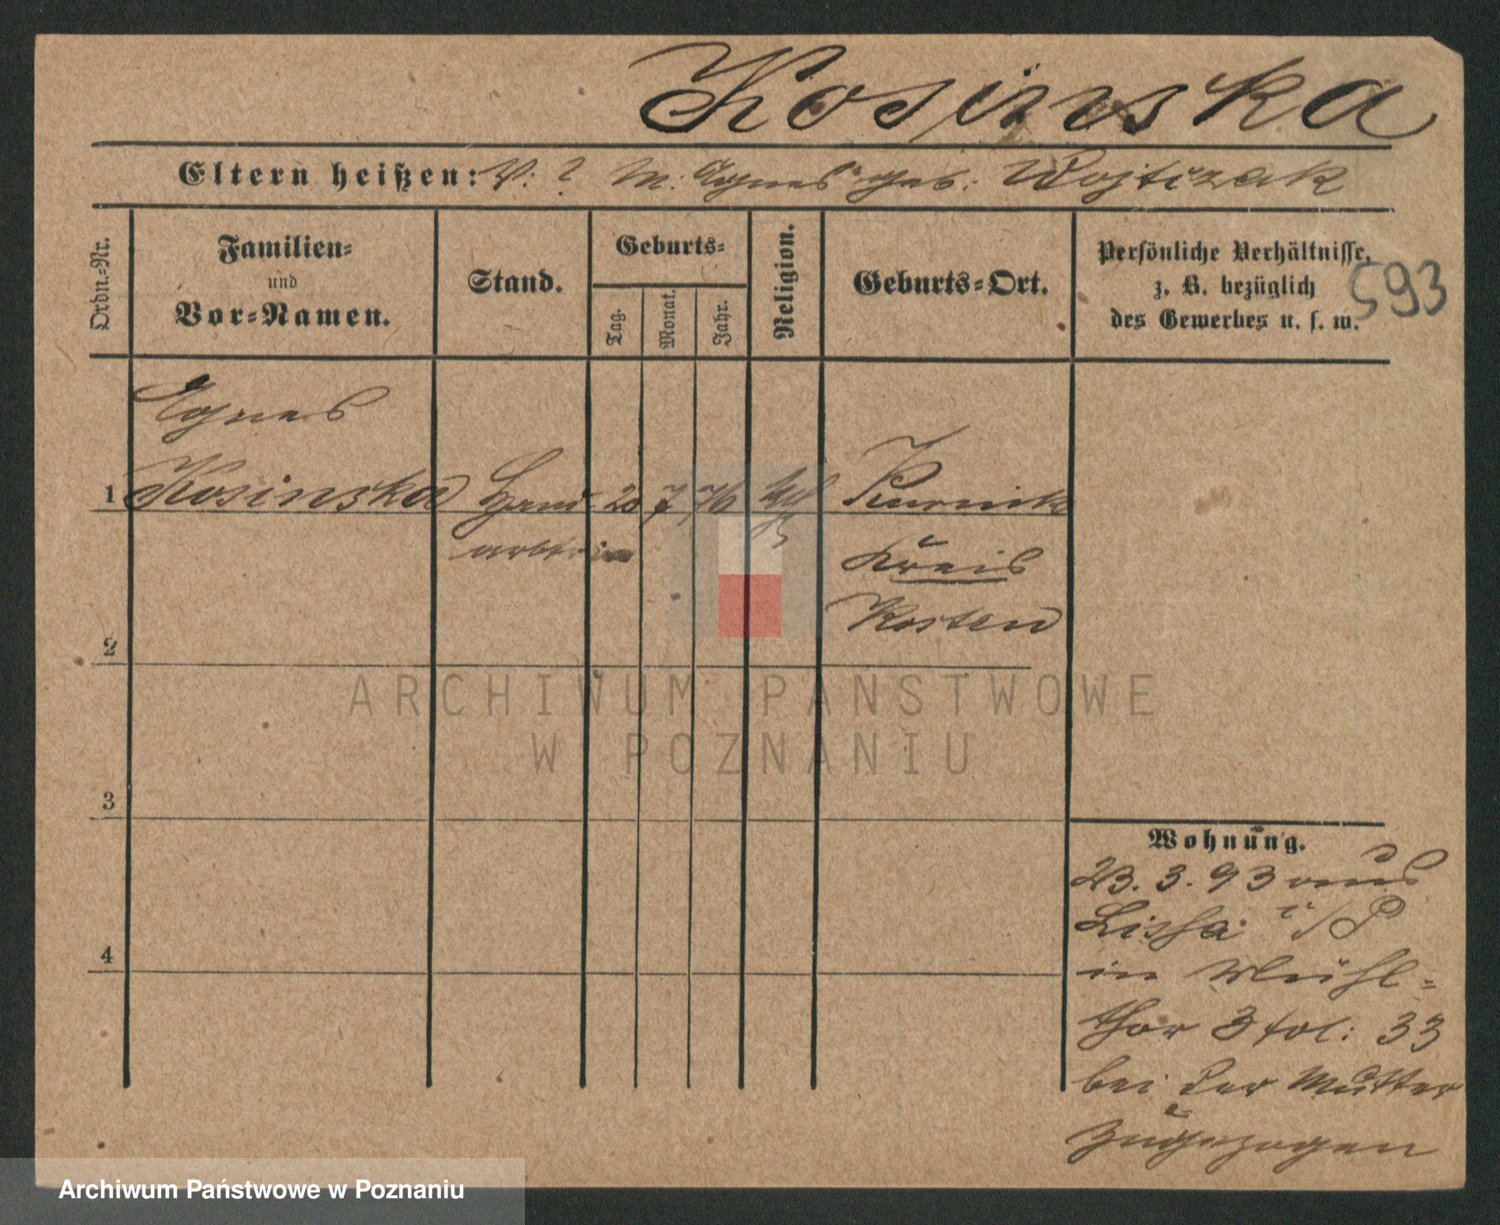 Kosinska
Eltern heißen: V: ? M. Agnes geb: Wojtczak
Ordn.-Nr.
Familien-
und
Vor-Namen.
Stand.
Geburts-
Tag.
Monat.
Jahr.
Religion.
Geburts-Ort.
Persönliche Verhältnisse,
z. B. bezüglich
des Gewerbes u. s. w.
593
Agnes
1 Kosinska Hand 20 7 76 kth Kurnik
arbterin Kreis
Kosten
2
3
4
ARCHIWUM PAŃSTWOWE
W POZNANIU
Wohnung.
23. 3. 93 aus
Lissa i/P
in Mühl-
thor 3 fol: 33
bei der Mutter
zugezogen
Archiwum Państwowe w Poznaniu